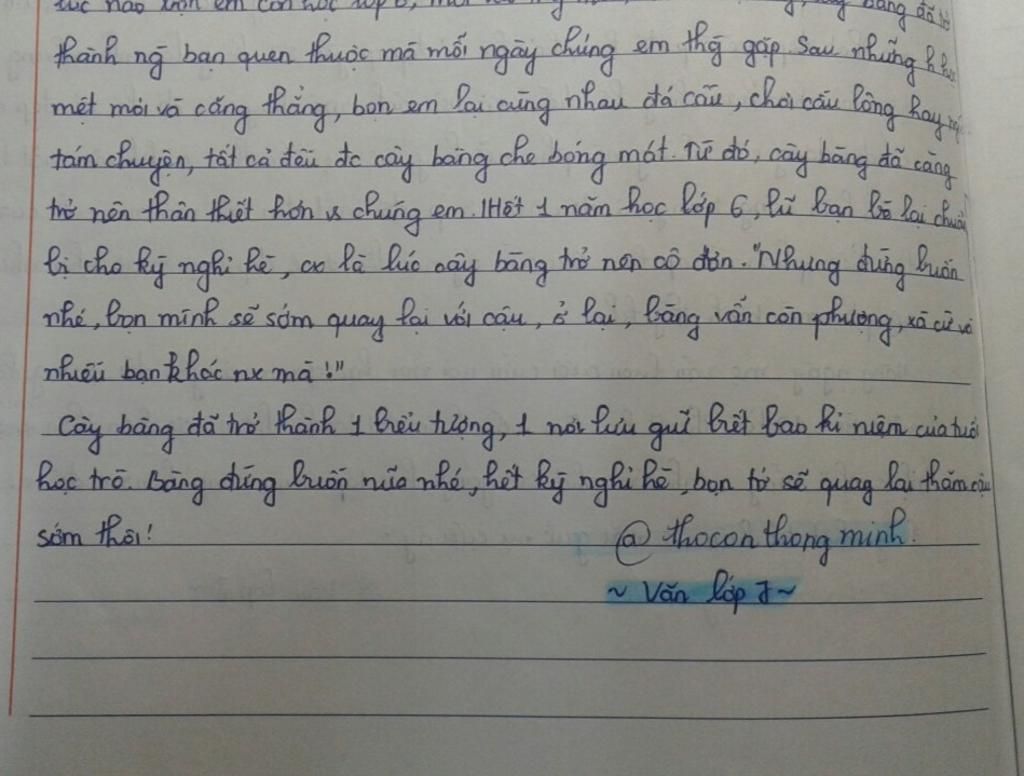 lúc nào em còn học lớp 6, bàng đã trở
thành ng̃ bạn quen thuộc mà mỗi ngày chúng em thg̃ gặp. Sau những
mệt mỏi và căng thẳng, bọn em lại cùng nhau đá cầu, chơi cầu lông hay
tám chuyện, tất cả đều đc cây bàng che bóng mát. Từ đó, cây bàng đã càng
trở nên thân thiết hơn vs chúng em. Hết 1 năm học lớp 6, lũ bạn bè lại chuẩn
bị cho kỳ nghỉ hè, cx là lúc cây bàng trở nên cô đơn. "Nhưng đừng buồn
nhé, bọn mình sẽ sớm quay lại với cậu, ở lại, bàng vẫn còn phượng, xà cừ và
nhiều bạn khác nx mà!"
Cây bàng đã trở thành 1 biểu tượng, 1 nơi lưu giữ biết bao kỉ niệm của tuổi
học trò. Bàng đừng buồn nữa nhé, hết kỳ nghỉ hè, bọn tớ sẽ quay lại thăm cậu
sớm thôi!
@thocon thong minh.
~ Văn lớp 7 ~